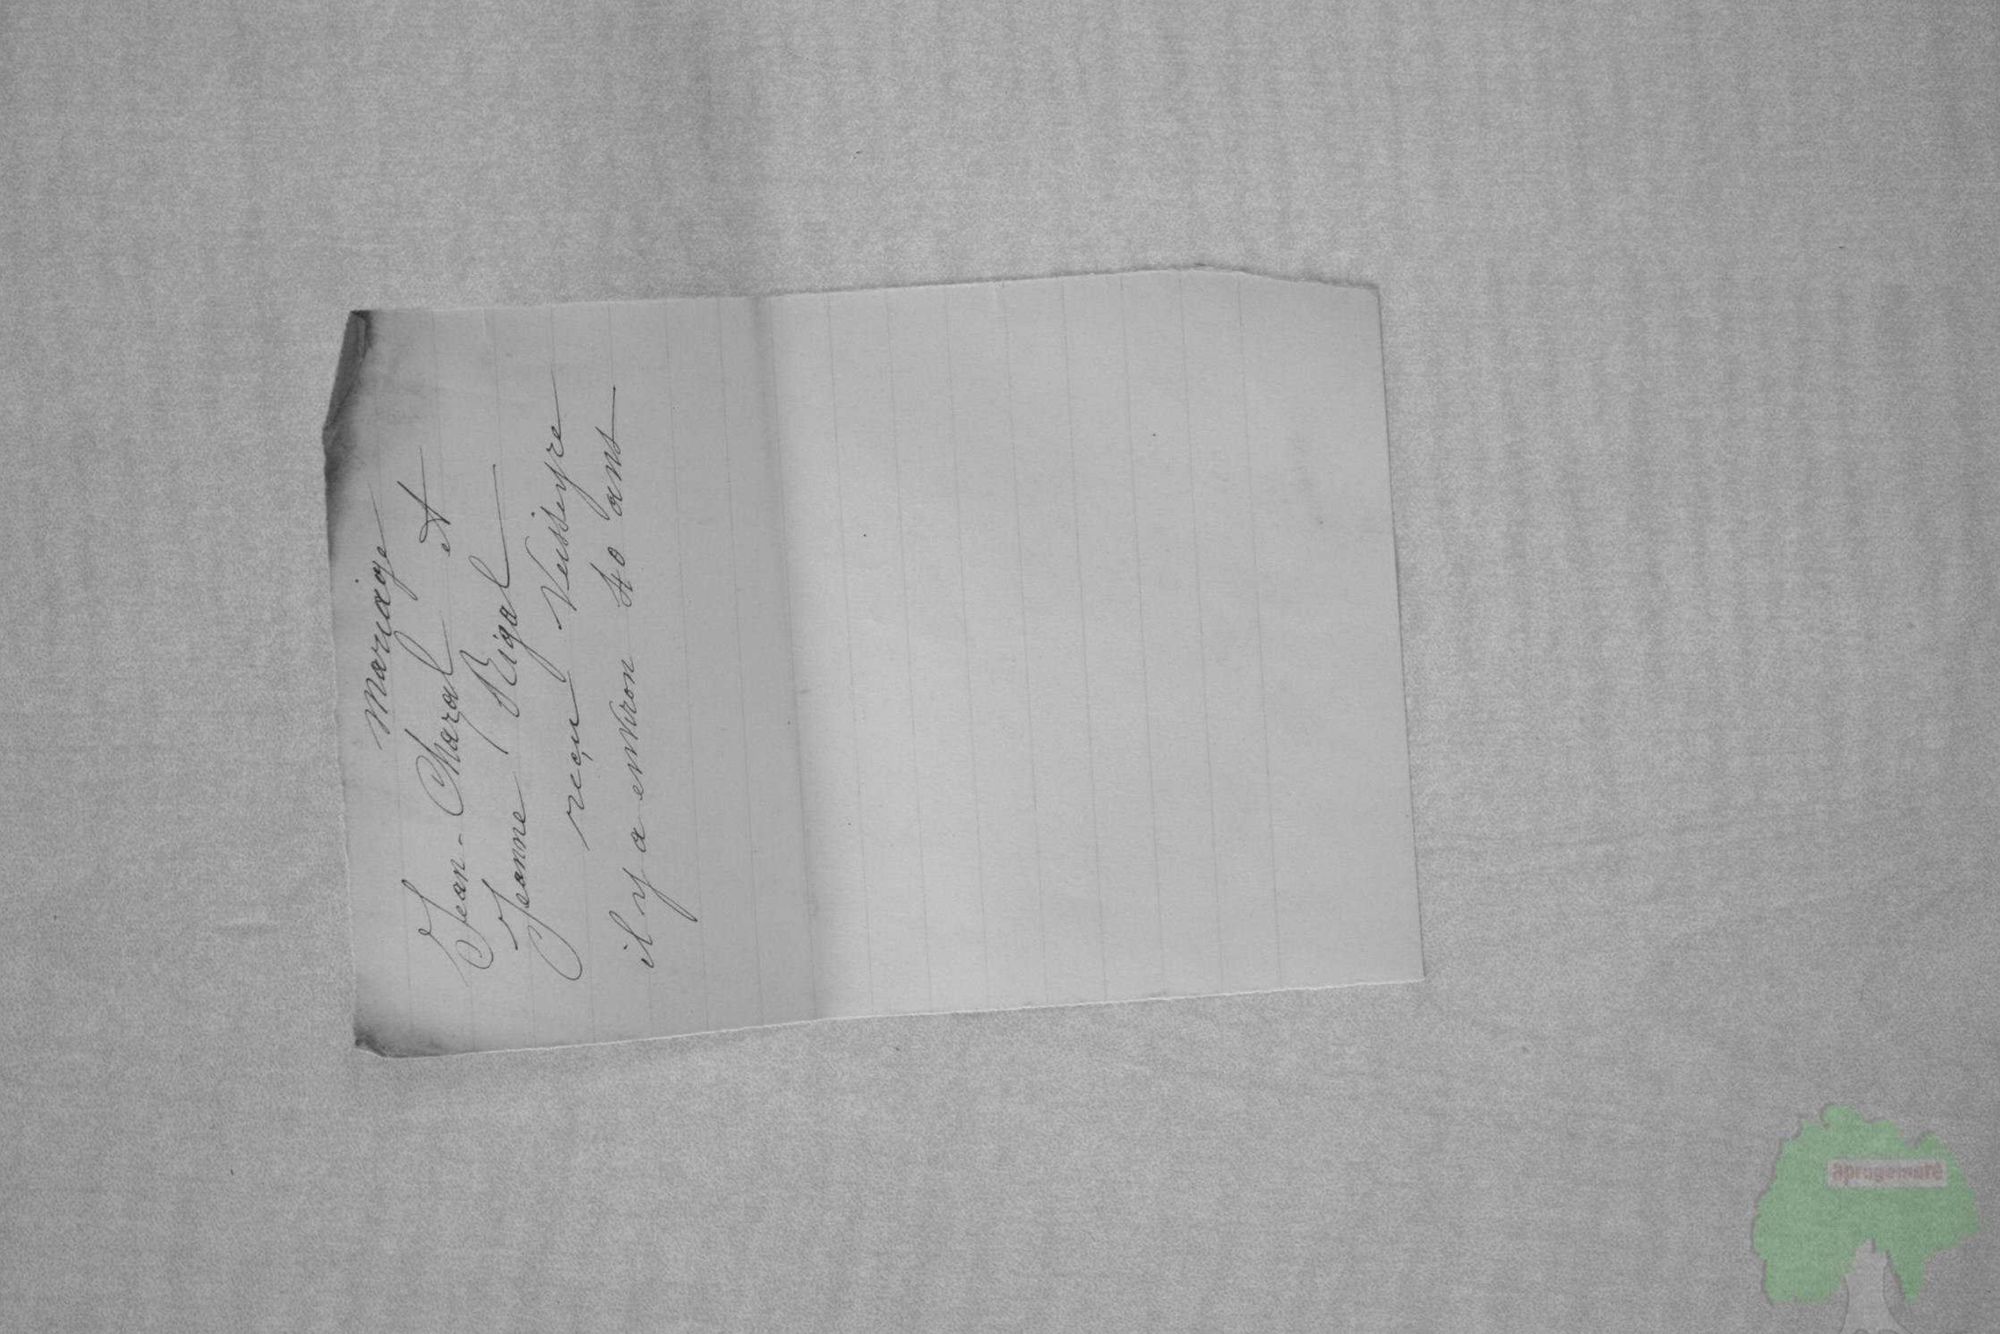 Mariage
Jean-Charal et
Jeanne Rigal
reçu Veisseyre
il y a environ 40 ans
aprogemere